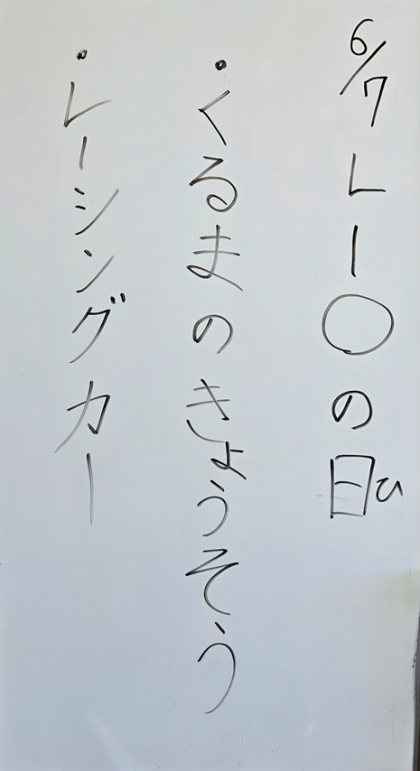 6/7 レー○の日ひ
・くるまのきょうそう
・レーシングカー